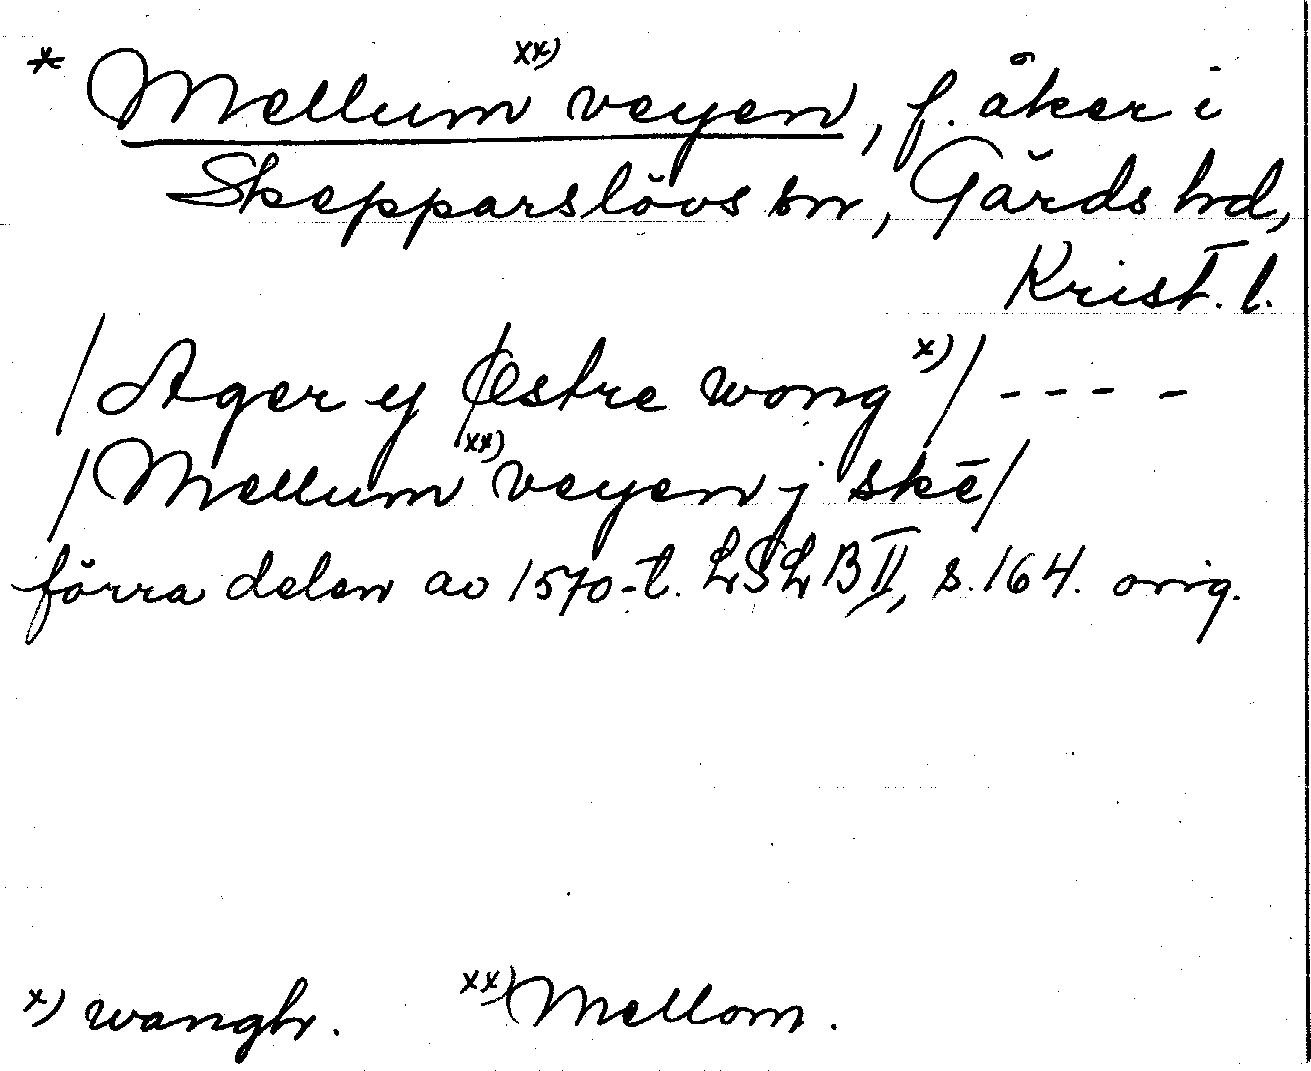 * Mellum xx) veyen, f. åker i
Skepparslövs sn, Gärds hd,
Krist. l.
/Ager y Østre wong x)/ ----
/Mellum xx) veyen j skē/
förra delen av 1570-t. LSLB II, s. 164. orig.
x) wangh. xx) Mellom.